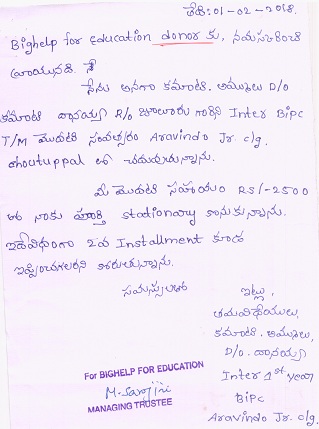 తేది: 01-02-2018.
Bighelp for education donor కు, నమస్కరించి
వ్రాయునది.
నేను అనగా కమాటి. అమ్ములు D/o
కమాటి దానయ్య R/o జూలూరు గారిని Inter Bipc
T/M మొదటి సంవత్సరం Aravindo Jr. clg.
choutuppal లో చదువుతున్నాను.
మీ మొదటి సహాయం RS/-2500
తో నాకు పూర్తి stationary కొనుకున్నాను.
ఇదేవిధంగా 2వ Installment కూడా
ఇప్పించగలరని కోరుతున్నాను.
ఇట్లు,
తమవిధేయులు,
కమాటి. అమ్ములు,
D/o. దానయ్య
Inter 1st year
Bipc
Aravindo Jr. clg.
For BIGHELP FOR EDUCATION
M. Sarojini
MANAGING TRUSTEE